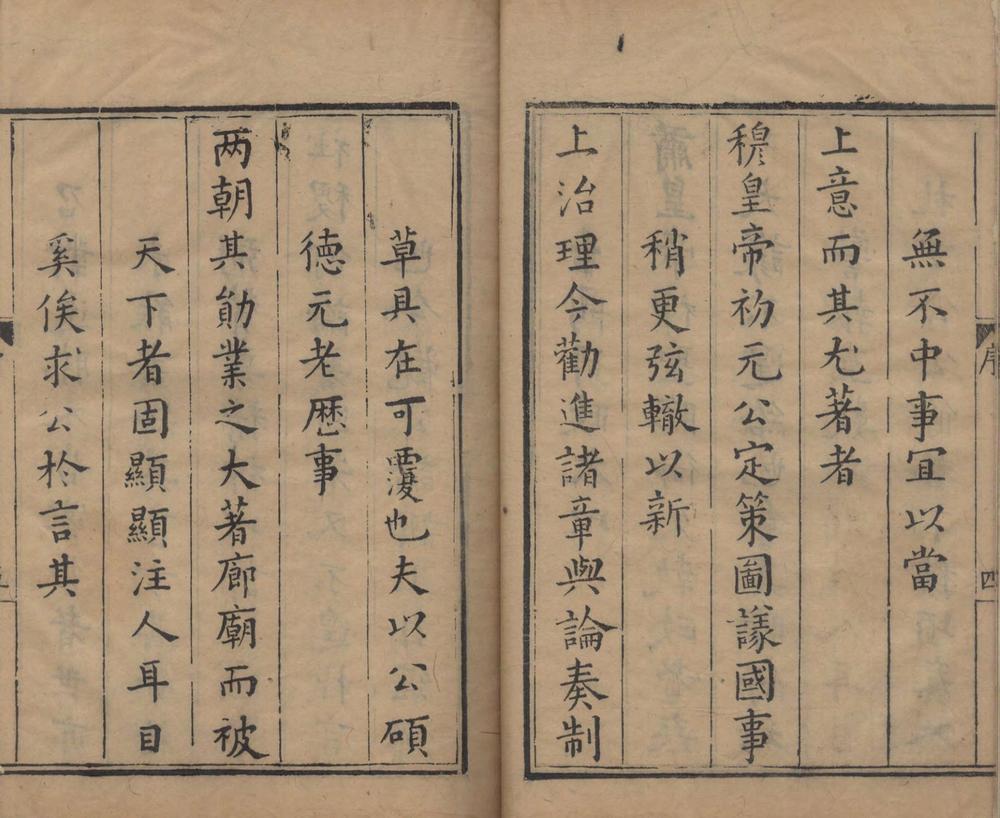 無不中事宜以當
上意而其尤著者
穆皇帝初元公定策圖議國事
稍更弦轍以新
上治理今勸進諸章與論奏制
草具在可覆也夫以公碩
德元老歷事
两朝其勛業之大著廊廟而被
天下者固顯顯注人耳目
奚俟求公於言其
序
四